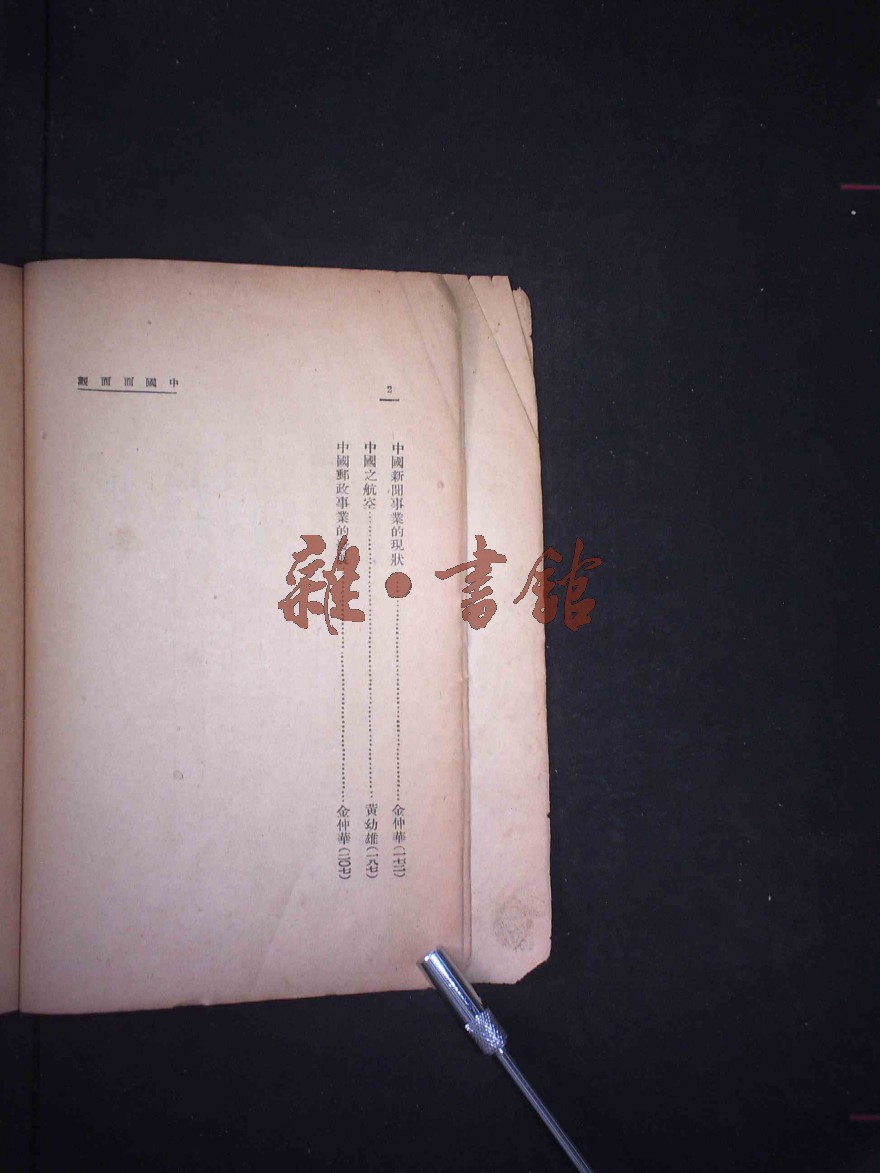 中國面面觀
2
中國新聞事業的現狀……金仲華(一七二)
中國之航空……黃幼雄(一八七)
中國郵政事業的……金仲華(二〇七)
雜·書館